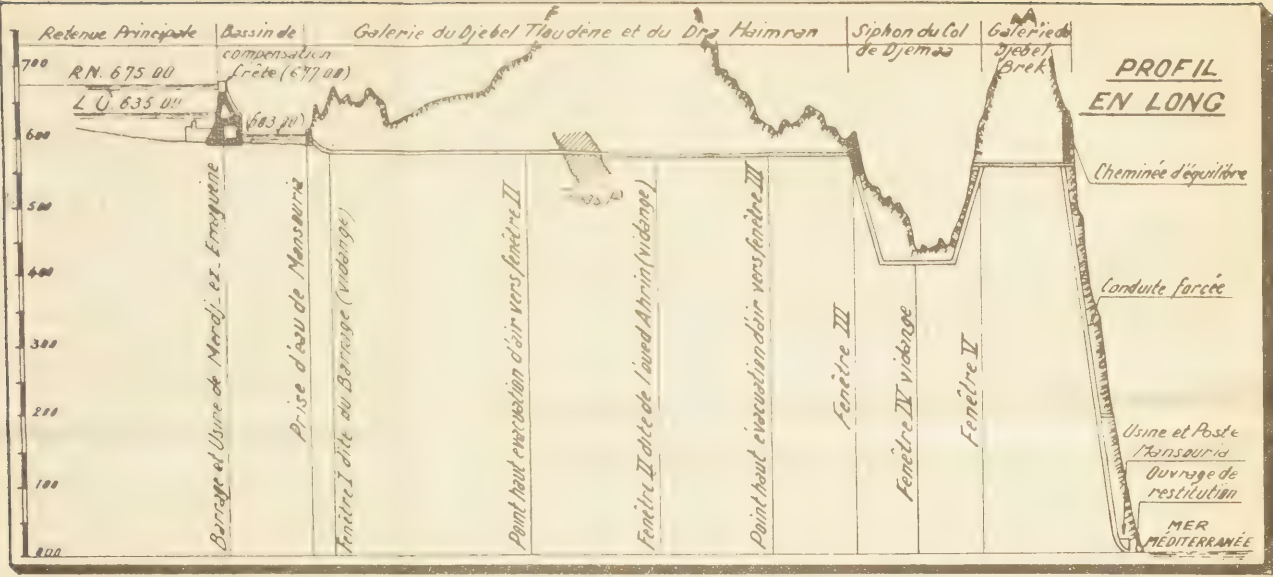 Retenue Principale
Bassin de
compensation
Galerie du Djebel Tloudène et du Dra Haimran
Siphon du Col
de Djemaa
Galerie du
Djebel
Brek
PROFIL
EN LONG
700
RN. 675 00
Crête (677 00)
L U. 635 00
(603,00)
600
500
400
300
200
100
000
Barrage et Usine de Merdj_ez_Erraguène
Prise d'eau de Mansouria
Fenêtre I dite du Barrage (vidange)
Point haut evacuation d'air vers fenêtre II
Fenêtre II dite de l'oued Ahrin (vidange)
Point haut évacuation d'air vers fenêtre III
Fenêtre III
Fenêtre IV vidange
Fenêtre V
Cheminée d'équilibre
Conduite forcée
Usine et Poste
Mansouria
Ouvrage de
restitution
MER
MÉDITERRANÉE